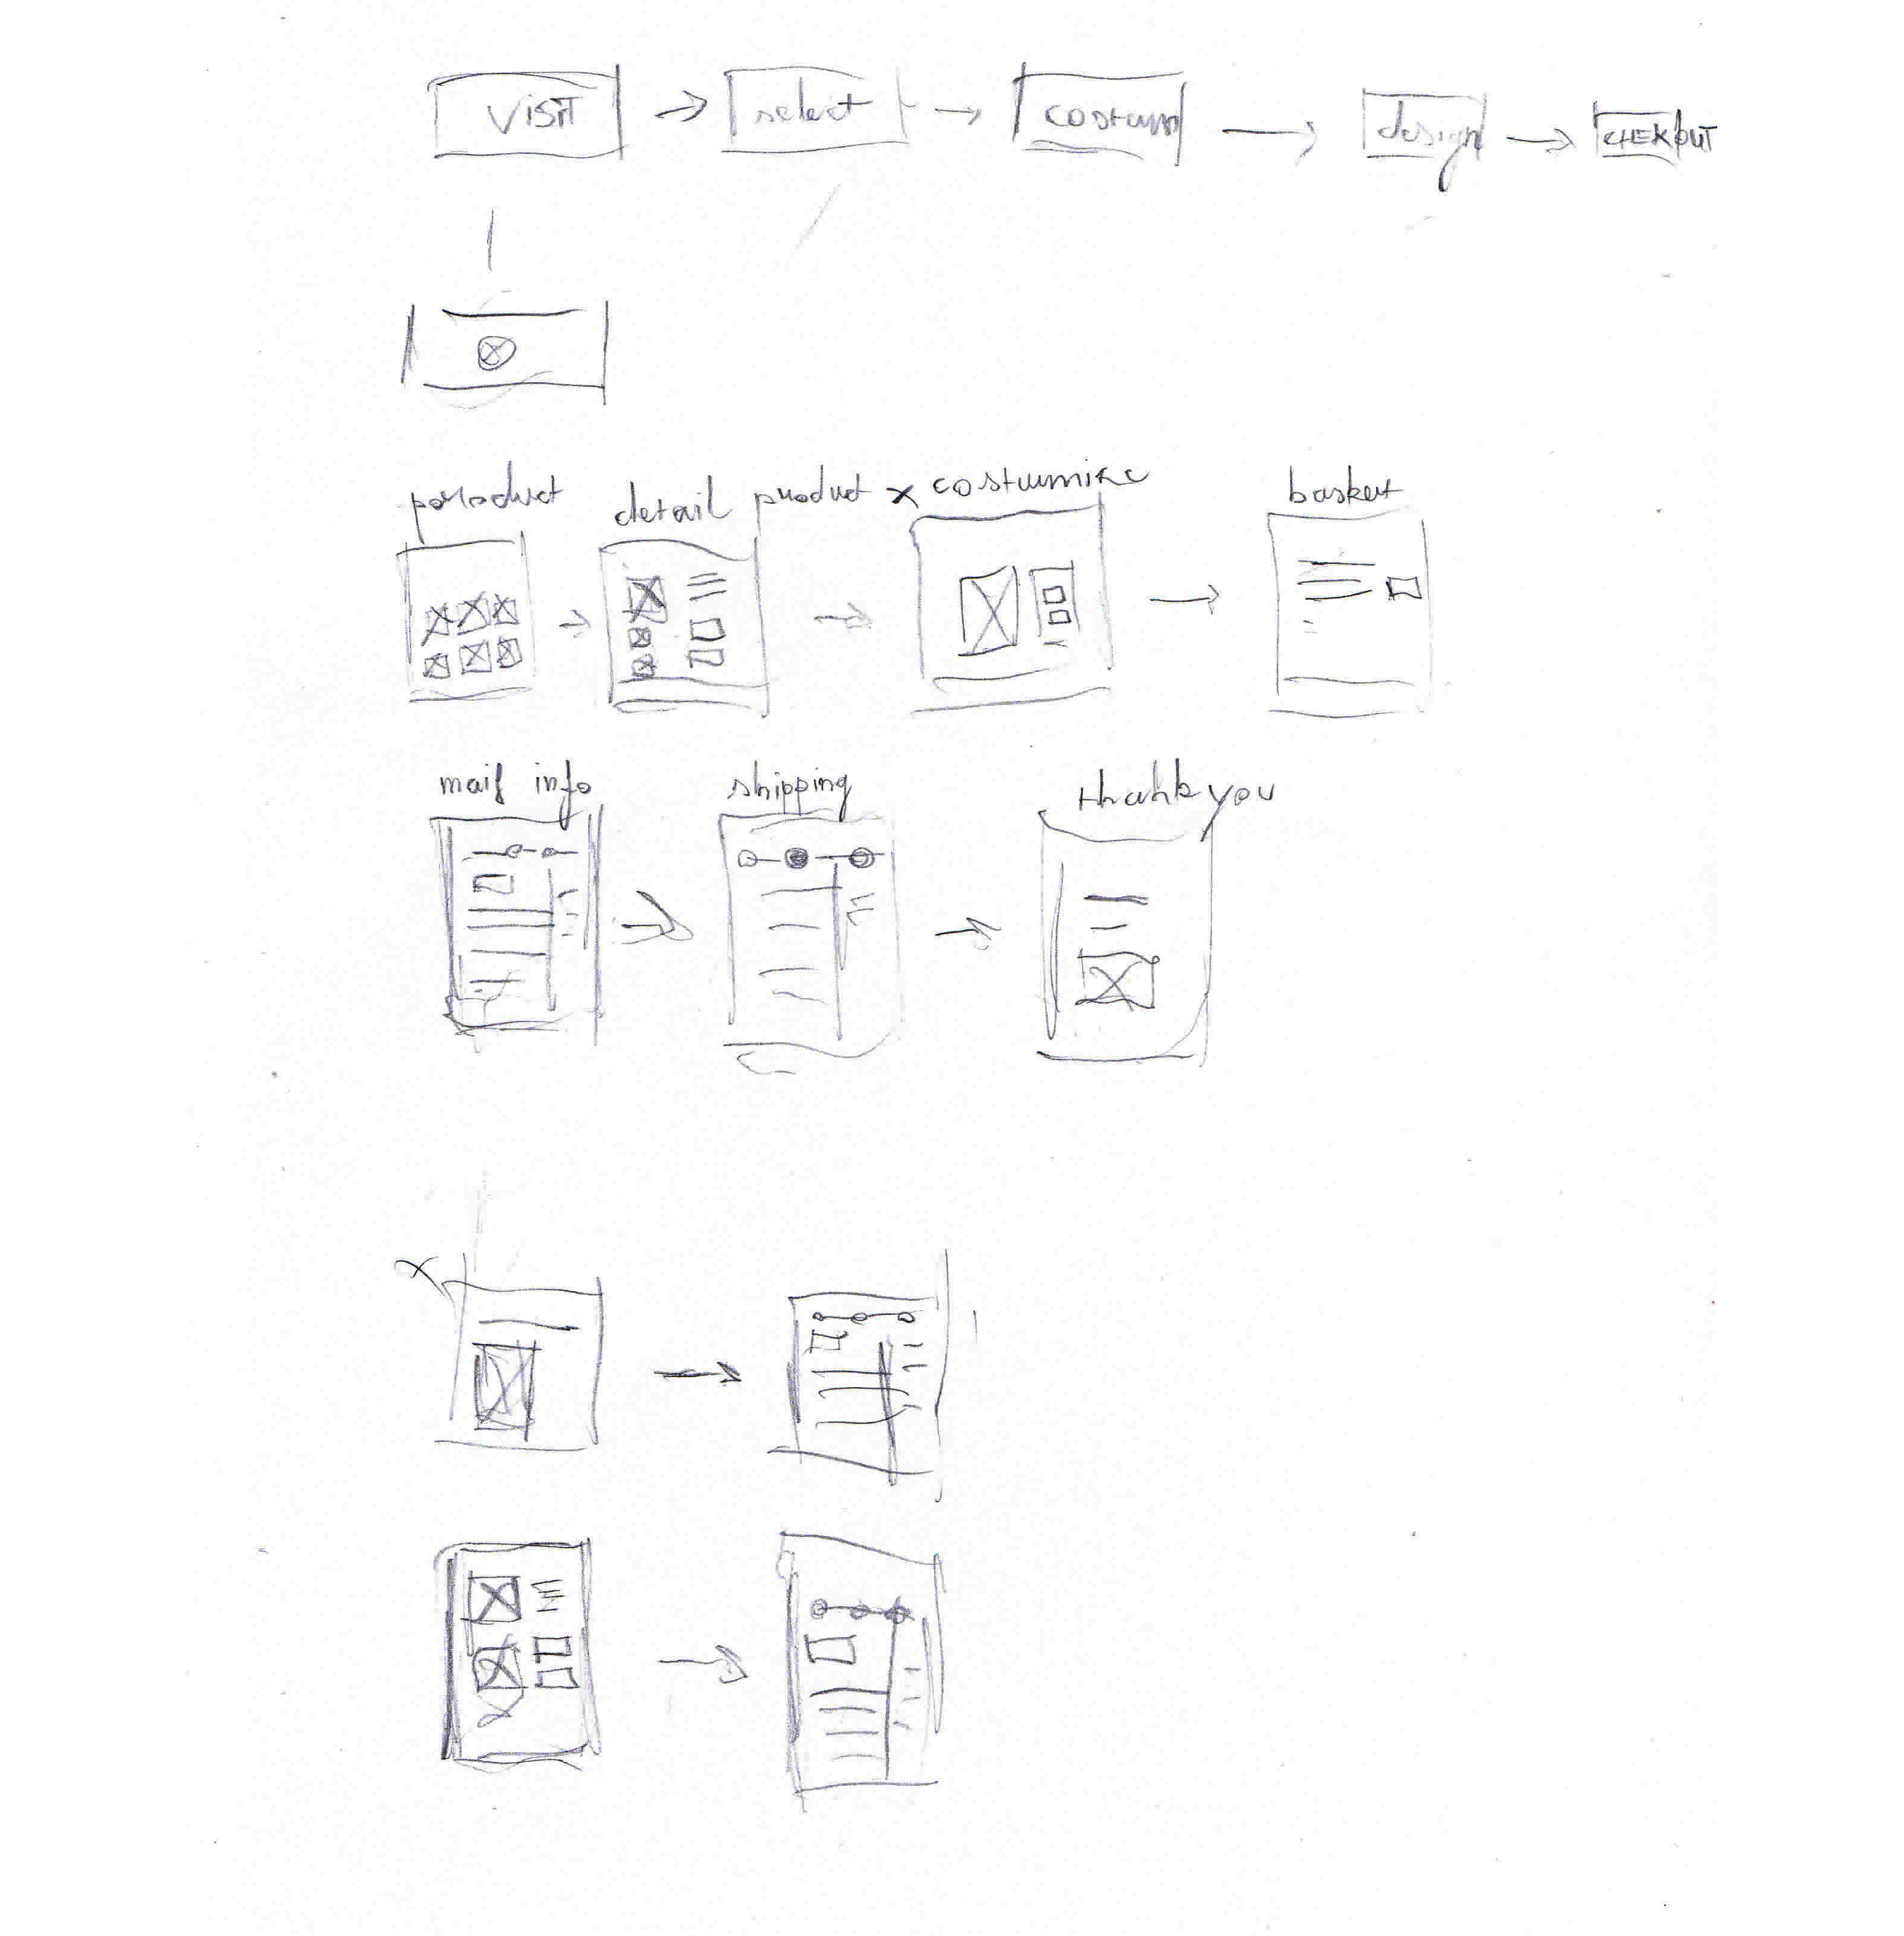 VISIT select costum design CHEKOUT
poroduct detail product x costumize basket
mail info shipping thank you
x